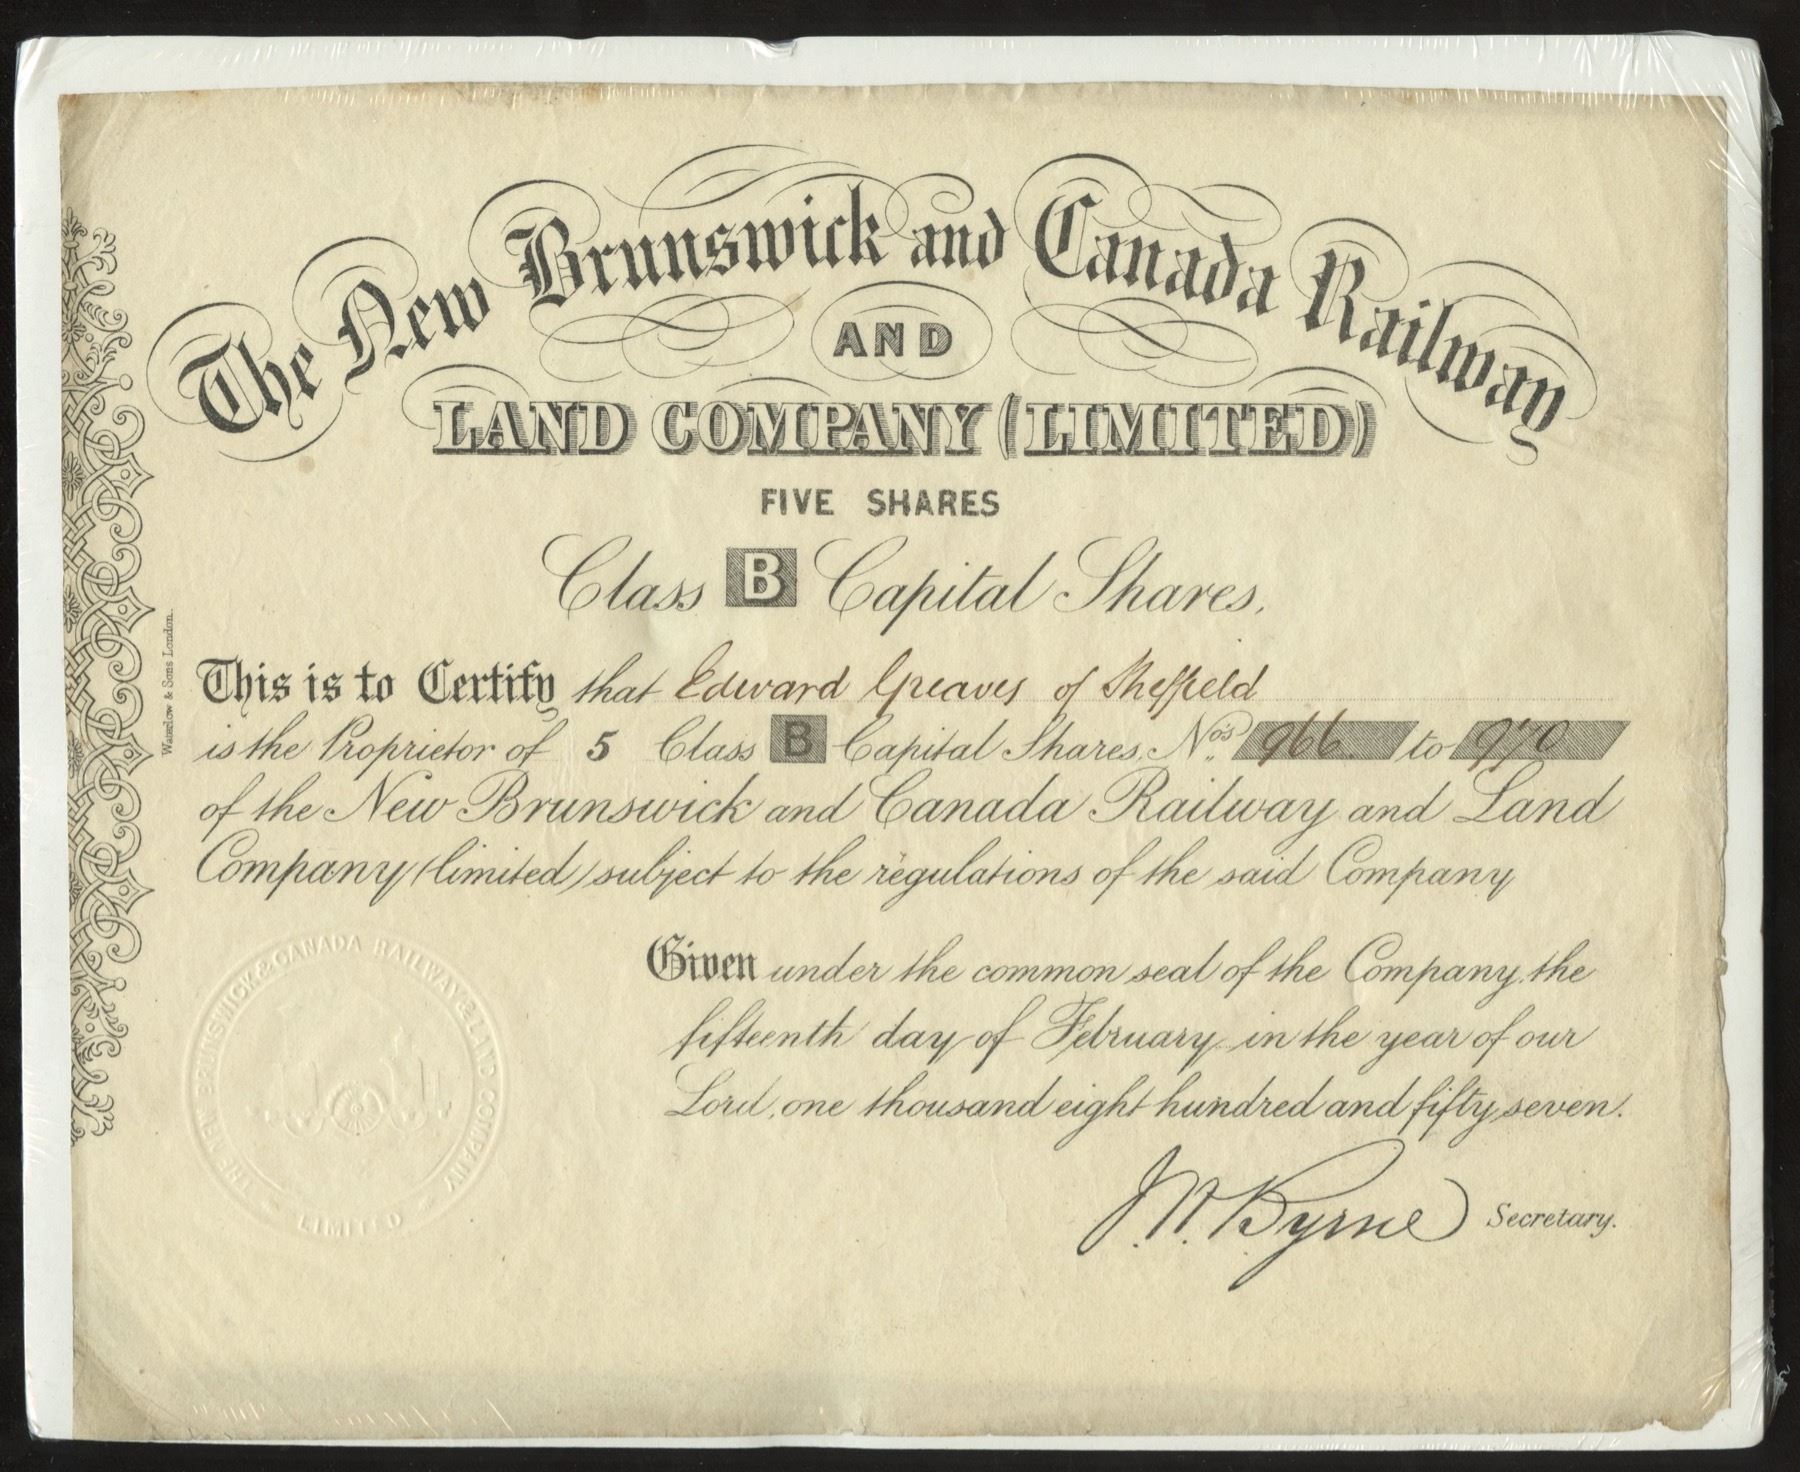 The New Brunswick and Canada Railway
AND
LAND COMPANY (LIMITED)
FIVE SHARES
Class B Capital Shares,
This is to Certify that Edward Greaves of Sheffield
is the Proprietor of 5 Class B Capital Shares, Nos. 966 to 970
of the New Brunswick and Canada Railway and Land
Company (limited) subject to the regulations of the said Company
Given under the common seal of the Company, the
fifteenth day of February in the year of our
Lord, one thousand eight hundred and fifty seven.
J. W. Byrne Secretary.
Waterlow & Sons London.
THE NEW BRUNSWICK & CANADA RAILWAY & LAND COMPANY
LIMITED